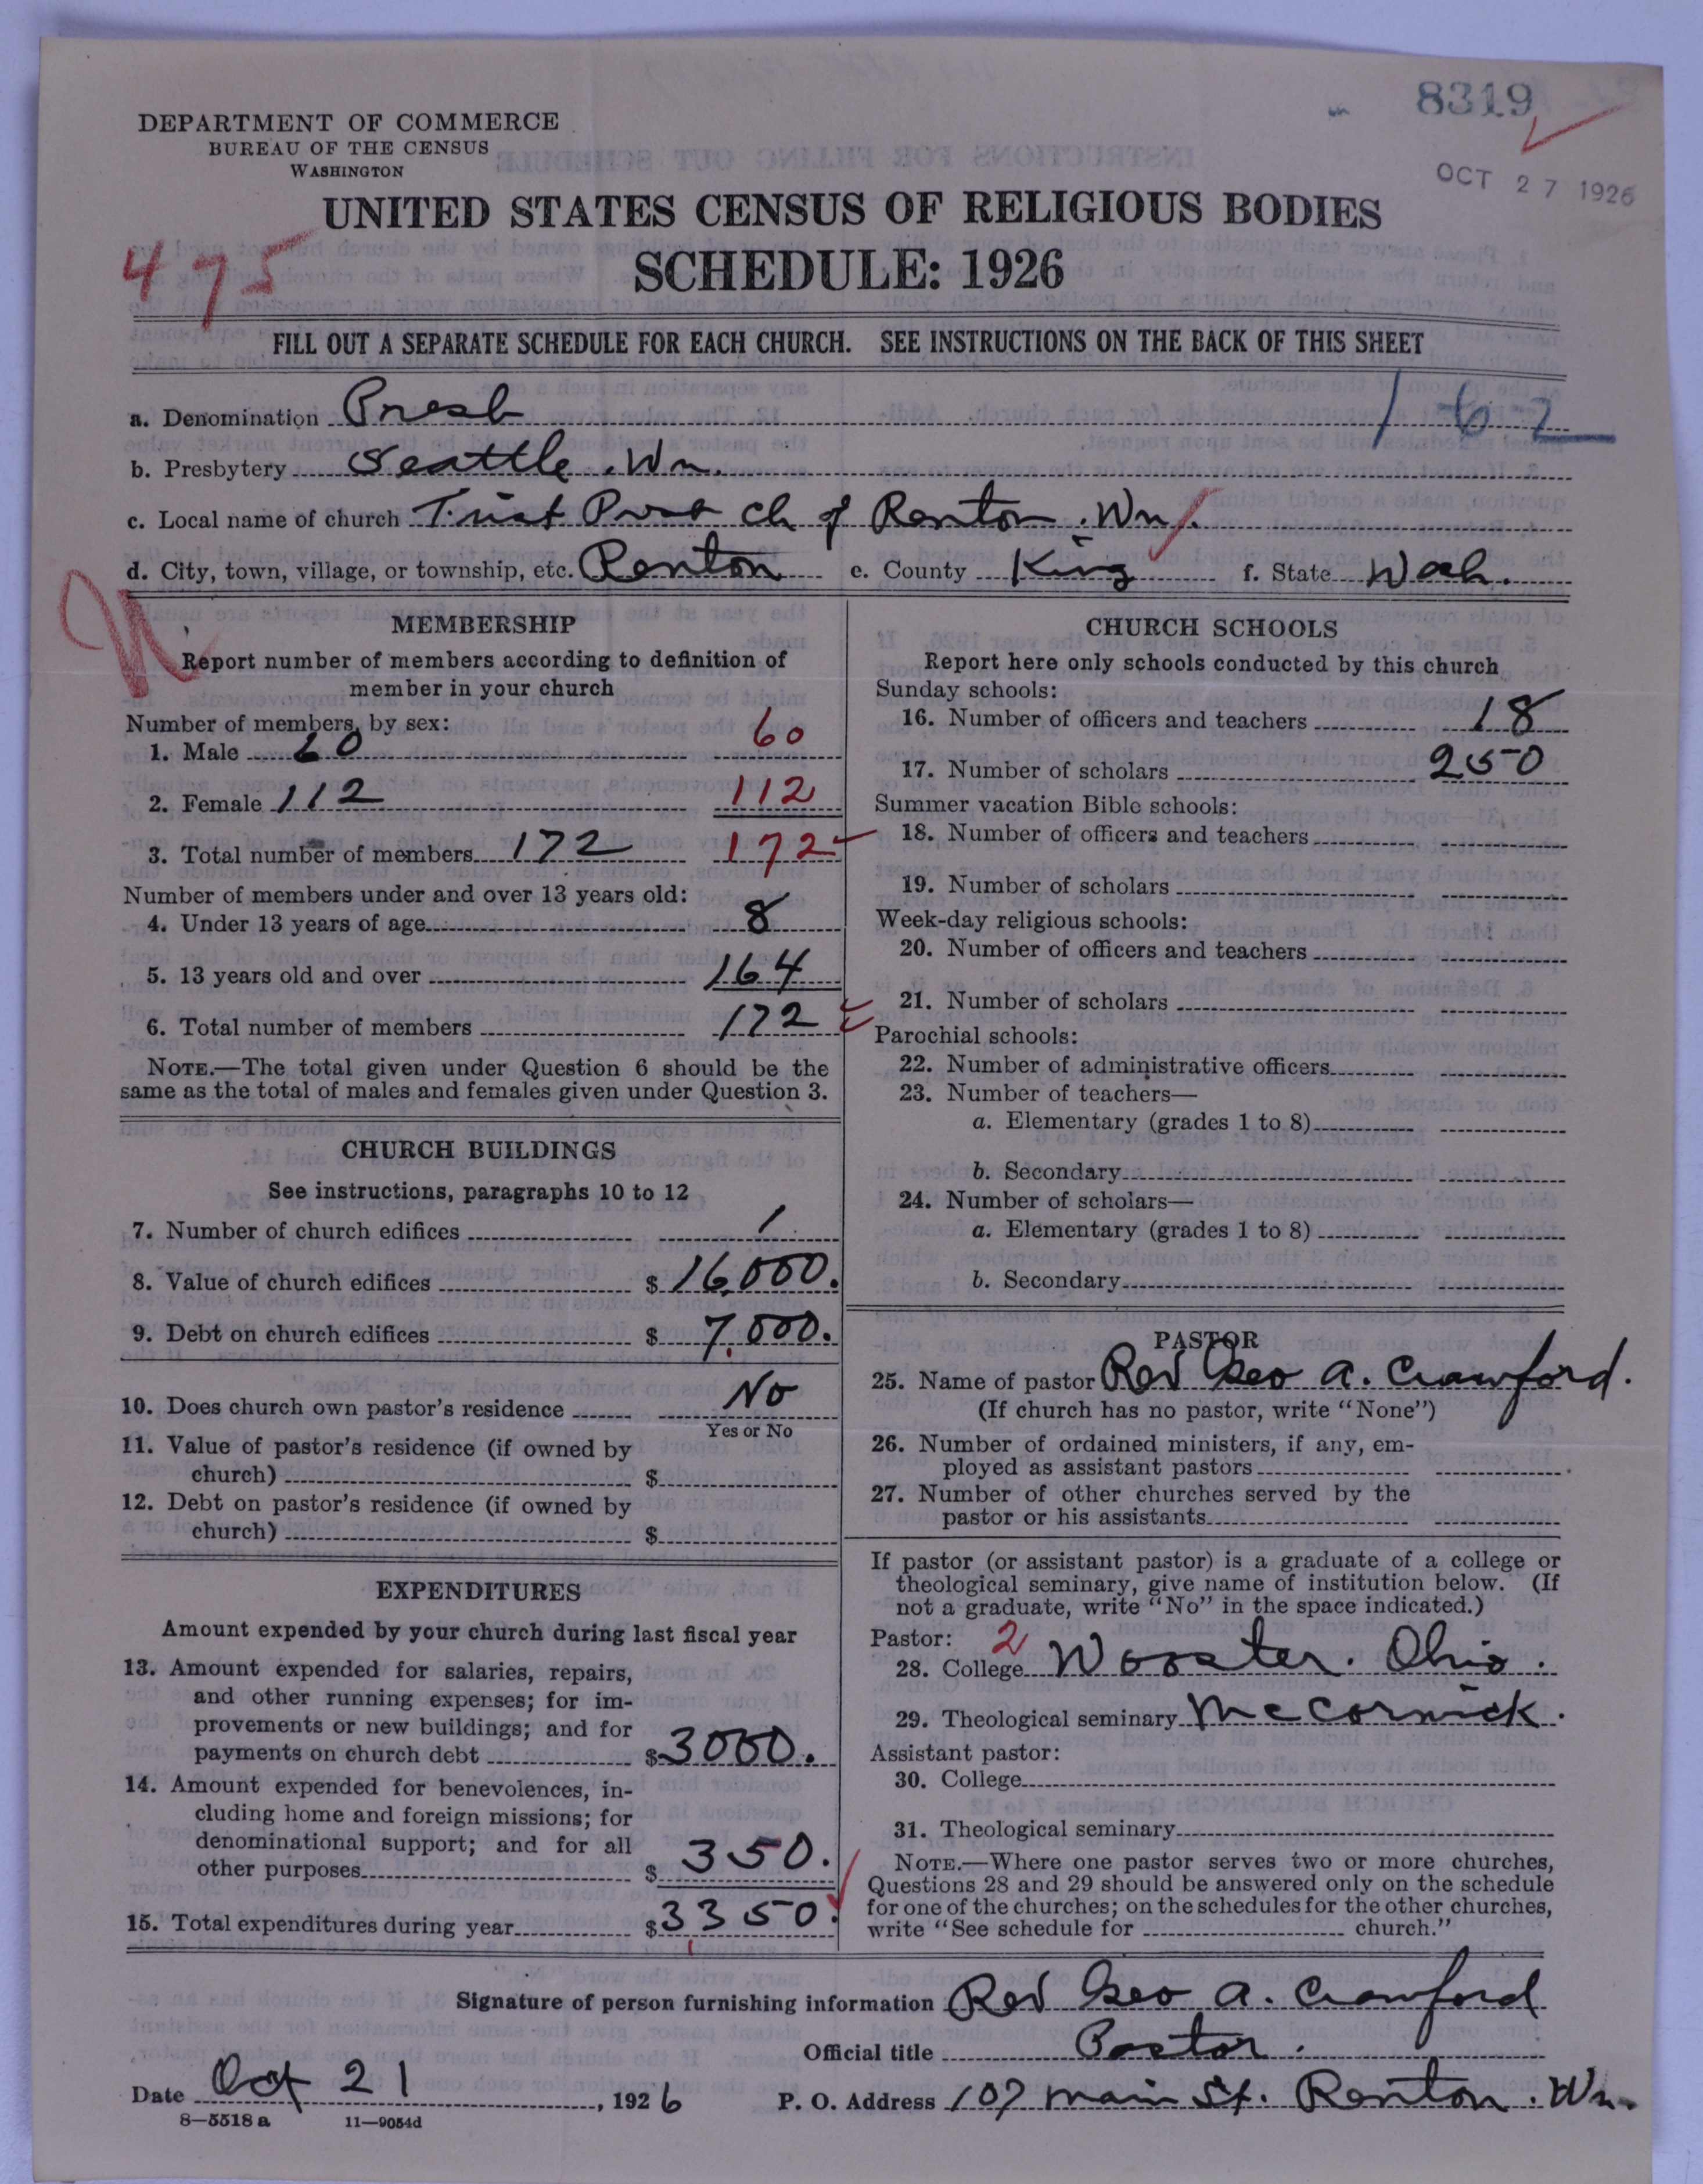 8319
OCT 27 1926
DEPARTMENT OF COMMERCE
BUREAU OF THE CENSUS
WASHINGTON
UNITED STATES CENSUS OF RELIGIOUS BODIES
SCHEDULE: 1926
475
FILL OUT A SEPARATE SCHEDULE FOR EACH CHURCH. SEE INSTRUCTIONS ON THE BACK OF THIS SHEET
1-6-2
a. Denomination Presb
b. Presbytery Seattle. Wn.
c. Local name of church First Pres Ch of Renton. Wn.
d. City, town, village, or township, etc. Renton e. County King f. State Wash.
N
MEMBERSHIP
Report number of members according to definition of
member in your church
Number of members, by sex:
1. Male 60 60
2. Female 112 112
3. Total number of members 172 172
Number of members under and over 13 years old:
4. Under 13 years of age 8
5. 13 years old and over 164
6. Total number of members 172
NOTE.—The total given under Question 6 should be the
same as the total of males and females given under Question 3.
CHURCH BUILDINGS
See instructions, paragraphs 10 to 12
7. Number of church edifices 1
8. Value of church edifices $ 16,000.
9. Debt on church edifices $ 7,000.
10. Does church own pastor's residence No
Yes or No
11. Value of pastor's residence (if owned by
church) $
12. Debt on pastor's residence (if owned by
church) $
EXPENDITURES
Amount expended by your church during last fiscal year
13. Amount expended for salaries, repairs,
and other running expenses; for im-
provements or new buildings; and for
payments on church debt $ 3000.
14. Amount expended for benevolences, in-
cluding home and foreign missions; for
denominational support; and for all
other purposes $ 350.
15. Total expenditures during year $ 3350.
CHURCH SCHOOLS
Report here only schools conducted by this church
Sunday schools:
16. Number of officers and teachers 18
17. Number of scholars 250
Summer vacation Bible schools:
18. Number of officers and teachers
19. Number of scholars
Week-day religious schools:
20. Number of officers and teachers
21. Number of scholars
Parochial schools:
22. Number of administrative officers
23. Number of teachers—
a. Elementary (grades 1 to 8)
b. Secondary
24. Number of scholars—
a. Elementary (grades 1 to 8)
b. Secondary
PASTOR
25. Name of pastor Rev Geo A. Crawford.
(If church has no pastor, write "None")
26. Number of ordained ministers, if any, em-
ployed as assistant pastors
27. Number of other churches served by the
pastor or his assistants
If pastor (or assistant pastor) is a graduate of a college or
theological seminary, give name of institution below. (If
not a graduate, write "No" in the space indicated.)
Pastor: 2
28. College Wooster. Ohio.
29. Theological seminary McCormick.
Assistant pastor:
30. College
31. Theological seminary
NOTE.—Where one pastor serves two or more churches,
Questions 28 and 29 should be answered only on the schedule
for one of the churches; on the schedules for the other churches,
write "See schedule for church."
Signature of person furnishing information Rev Geo A. Crawford
Official title Pastor.
Date Oct 21, 1926 P. O. Address 107 Main St. Renton. Wn.
8—5518 a 11—9054d